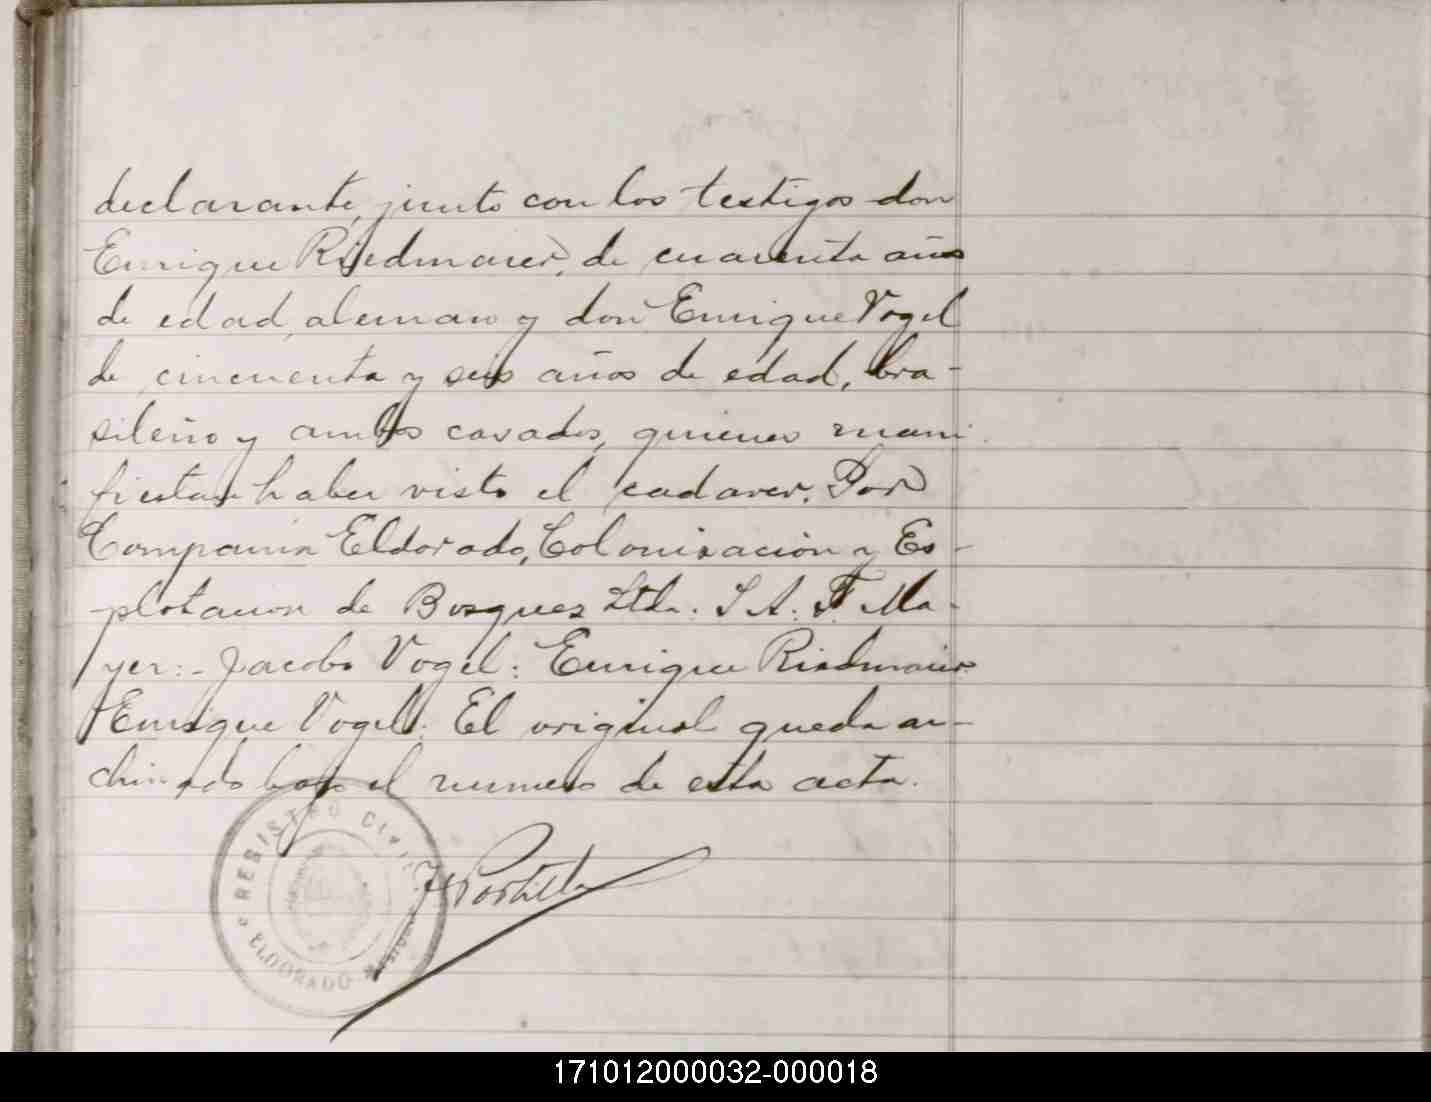 declarante, junto con los testigos don
Enrique Riedmaier, de cuarenta años
de edad, aleman y don Enrique Vogel
de cincuenta y seis años de edad, bra-
sileño y ambos casados, quienes mani
fiestan haber visto el cadaver. Por
Compania Eldorado, Colonisación y Es-
plotacion de Bosques Ltda. S A. F. Ma-
yer:- Jacobo Vogel: Enrique Riedmaier
Enrique Vogel. El original queda ar-
chivado bajo el numero de esta acta.
REGISTRO CIVIL
ELDORADO MISIONES
Portillo
171012000032-000018